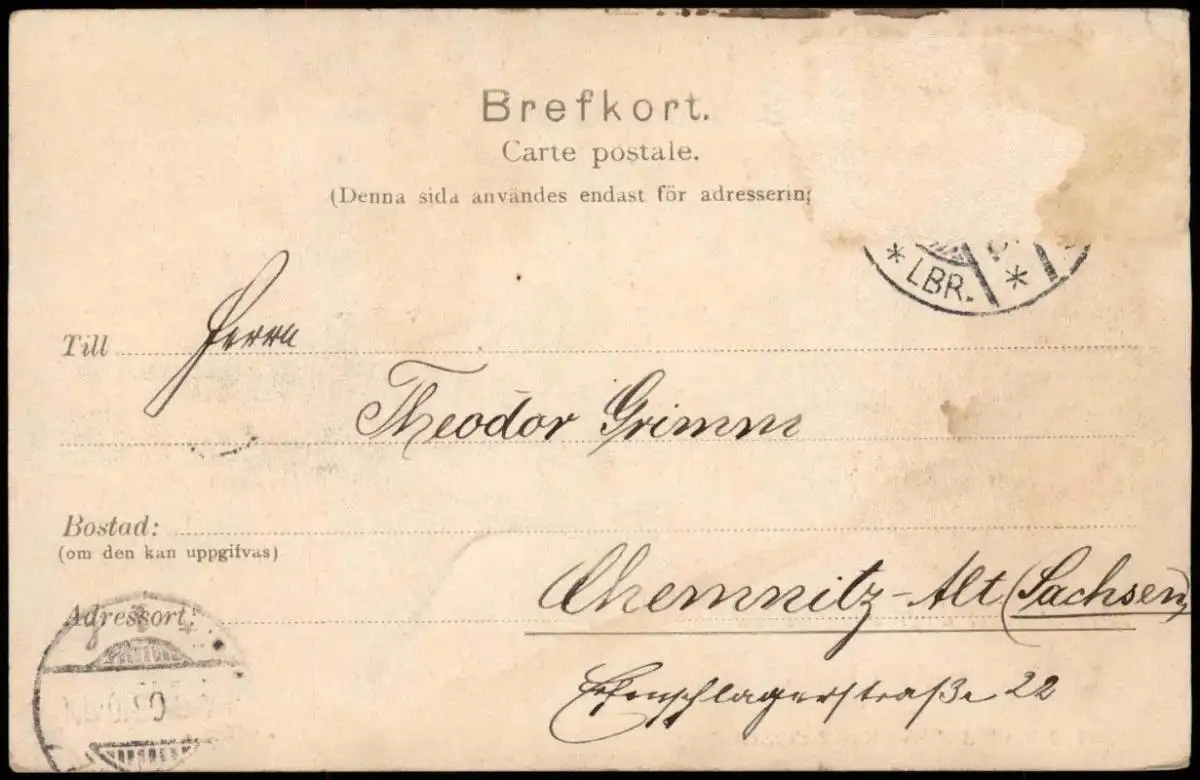 Brefkort.
Carte postale.
(Denna sida användes endast för adressering
* LBR. *
Till Herrn
Theodor Grimm
Bostad:
(om den kan uppgifvas)
Adressort: Chemnitz-Alt (Sachsen)
22